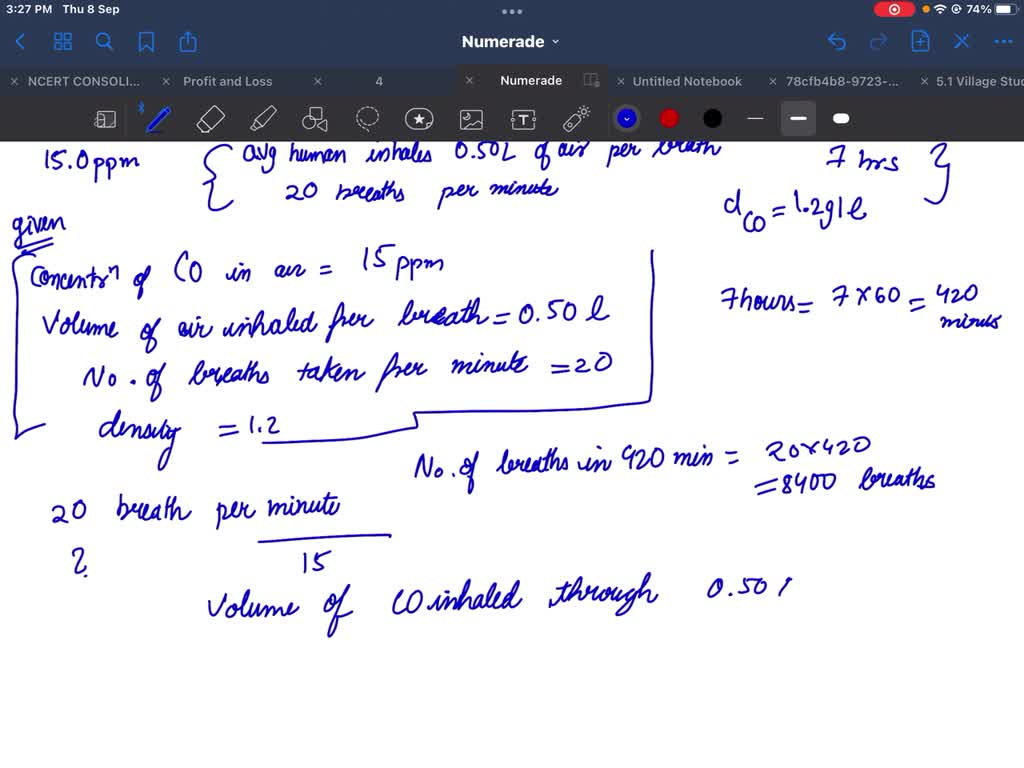 3:27 PM Thu 8 Sep
74%
Numerade
NCERT CONSOLI...
Profit and Loss
4
Numerade
Untitled Notebook
78cfb4b8-9723-...
5.1 Village Stu
15.0ppm
avg human inhales 0.50L of air per breath
20 breaths per minute
7 hrs
dCO = 1.2g/l
given
Concentrⁿ of CO in air = 15 ppm
Volume of air inhaled per breath = 0.50 l
No. of breaths taken per minute = 20
density = 1.2
7hours = 7×60 = 420
minus
No. of breaths in 420 min = 20×420
= 8400 breaths
20 breath per minute
?
15
Volume of CO inhaled through 0.50